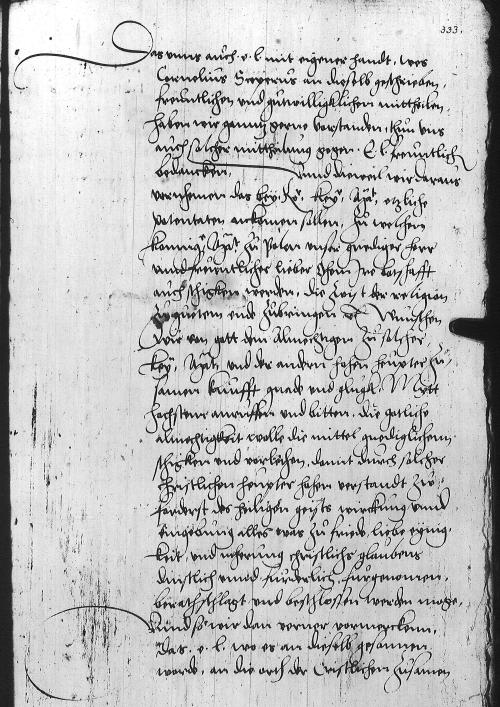 333.
Das vnns auch e. l. mit eigener handt, wes
Cornelius Sceperus an dieselb geschrieben,
freuntlichen vnd gutwilligklichen mittheilen,
haben wir gantz gerne vorstanden, thun vns
auch solcher mittheilung gegen E. l. freuntlich
bedancken, vnnd dieweil wir daraus
vernehmen das bey kay. Mat. etzliche
potentaten ankomen sollen, zu welchen
konnig. Mat. zu Polan vnser gnediger herr
vnnd freuntlicher lieber Ohem Ire botschafft
auch schigken werden, die zwist der religion
zu gutem ende zubringen Wunschen
wir von gott dem Almechtigen zu solcher
key. Mat. vnd der andern hohen heupter zu-
samen kunfft gnade vnd glugk, Mytt
hochstem anruffen vnd bitten, die gotliche
almechtigkeit wolle die mittel gnediglichenn
schigken vnd vorleihen, damit durch solcher
christlichen heupter hohen verstandt zu-
forderst des heiligen geists wirckung vnnd
eingebung alles was zu friede, liebe eynig-
keit, vnd mherung christlichs glaubens
dinstlich vnnd furderlich, furgenomen,
berathschlagt vnd beschlossen werden moge,
Vnnd so wir dan verner vormercken,
das e. l. wo es an dieselb gesonnen
wurde, an die orth der Cristlichen zusamen